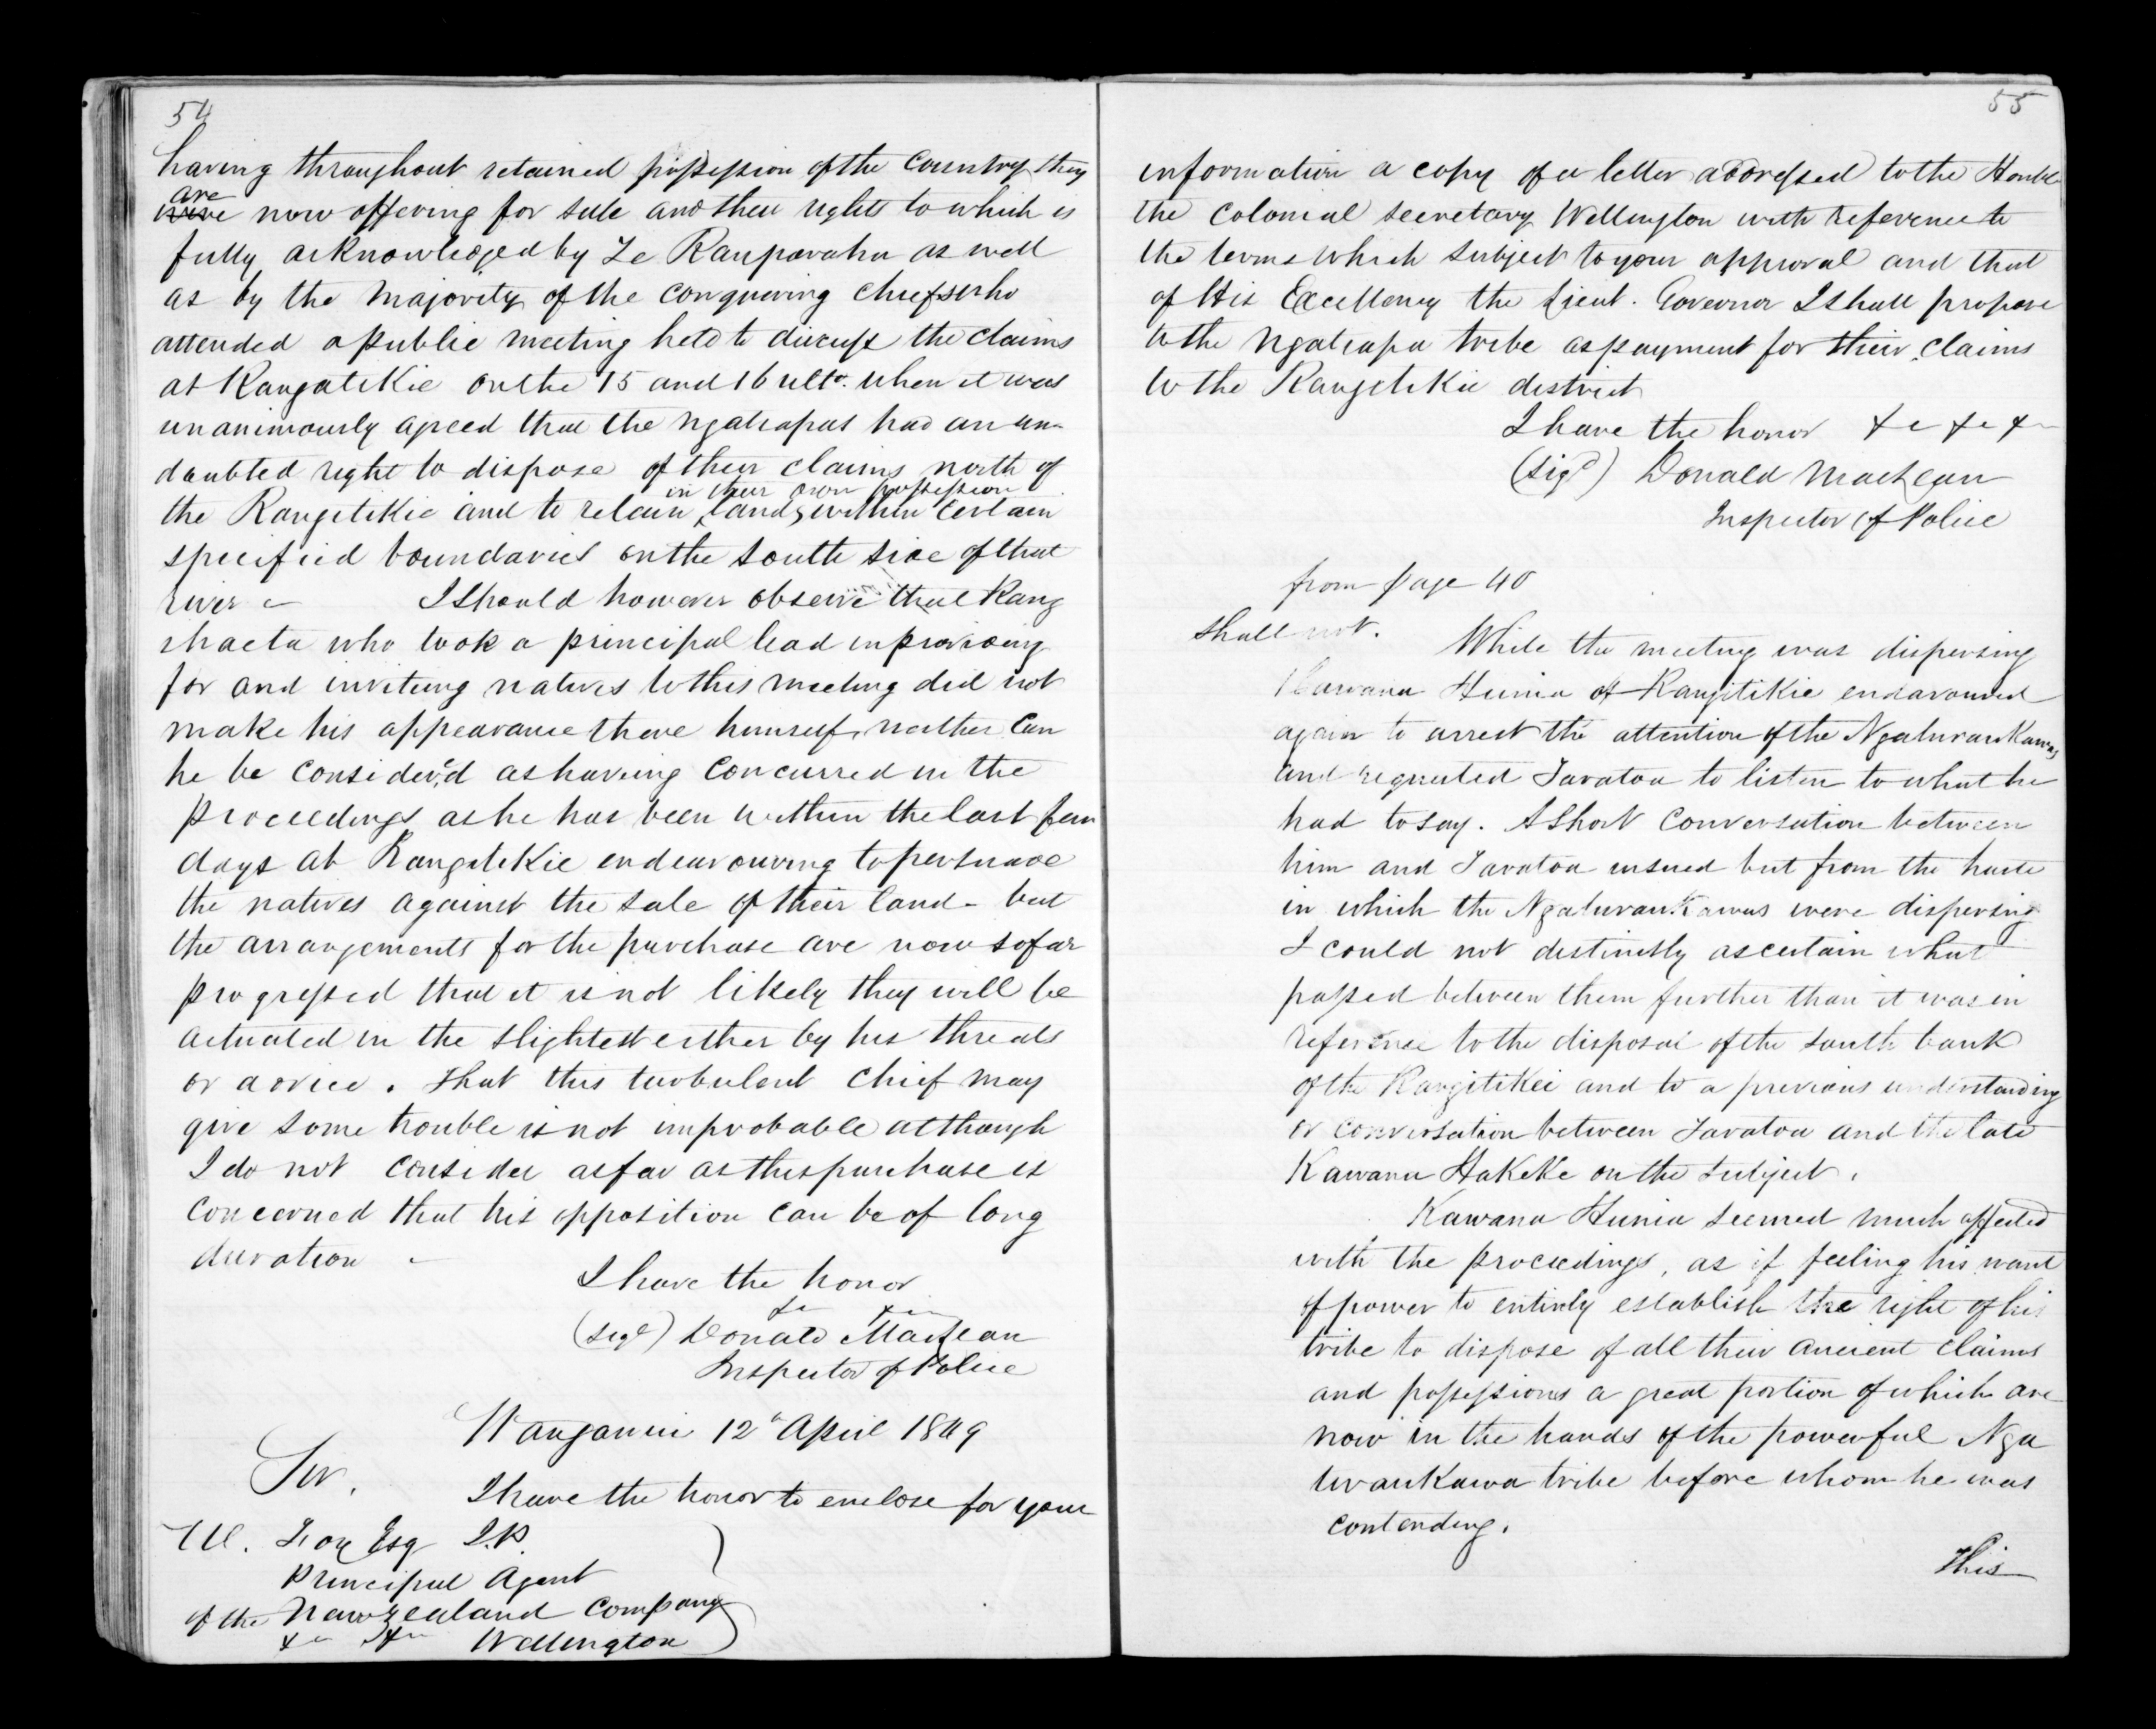 54
having throughout retained possession of the Country they
are
were now offering for sale and their rights to which is
fully acknowledged by Te Rauparaha as well
as by the Majority of the conquering chiefs who
attended a public meeting held to discuss the claims
at Rangatikie on the 15 and 16 ulto. when it was
unanimously agreed that the Ngatiapas had an un-
doubted right to dispose of their claims north of
in their own possession
the Rangitikie and to retain lands within certain
specified boundaries on the South side of that
river - I Should however observe that Rang
ihaeta who took a principal lead in providing
for and inviting natives to this meeting did not
make his appearance there himself, neither Can
he be Consider'd as having Concurred in the
proceedings as he has been within the last few
days at Rangitikie endeavouring to persuade
the natives against the sale of their land - but
the arrangements for the purchase are now so far
progressed that it is not likely they will be
actuated in the slightest either by his threats
or advice. That this turbulent Chief may
give Some trouble is not improbable although
I do not Consider as far as this purchase is
Concerned that his opposition can be of long
duration -
I have the honor
&c &c
(sigd) Donald MacLean
Inspector of Police
Wanganui 12th April 1849
Sir,
I have the honor to enclose for your
W. Fox Esq J.P.
Principal Agent
of the New Zealand Company
&c &c Wellington
55
information a copy of a letter addressed to the Honble
the Colonial Secretary Wellington with reference to
the terms which subject to your approval and that
of His Excellency the Lieut. Governor I shall propose
to the Ngatiapa tribe as payment for their claims
to the Rangitikie district
I have the honor &c &c &c
(sigd) Donald MacLean
Inspector of Police
from page 40
shall not.
While the meeting was dispersing
Kawana Hunia of Rangitikie endavoured
again to arrest the attention of the Ngatiraukawas
and requested Taratoa to listen to what he
had to say. A Short Conversation between
him and Taratoa ensued but from the haste
in which the Ngatiraukawas were dispersing
I could not distinctly ascertain what
passed between them further than it was in
reference to the disposal of the South bank
of the Rangitikei and to a previous understanding
or conversation between Taratoa and the late
Kawana Hakeke on the Subject.
Kawana Hunia seemed much affected
with the proceedings, as if feeling his want
of power to entirely establish the right of his
tribe to dispose of all their ancient claims
and possessions a great portion of which are
now in the hands of the powerful Nga
tiraukawa tribe before whom he was
contending.
This